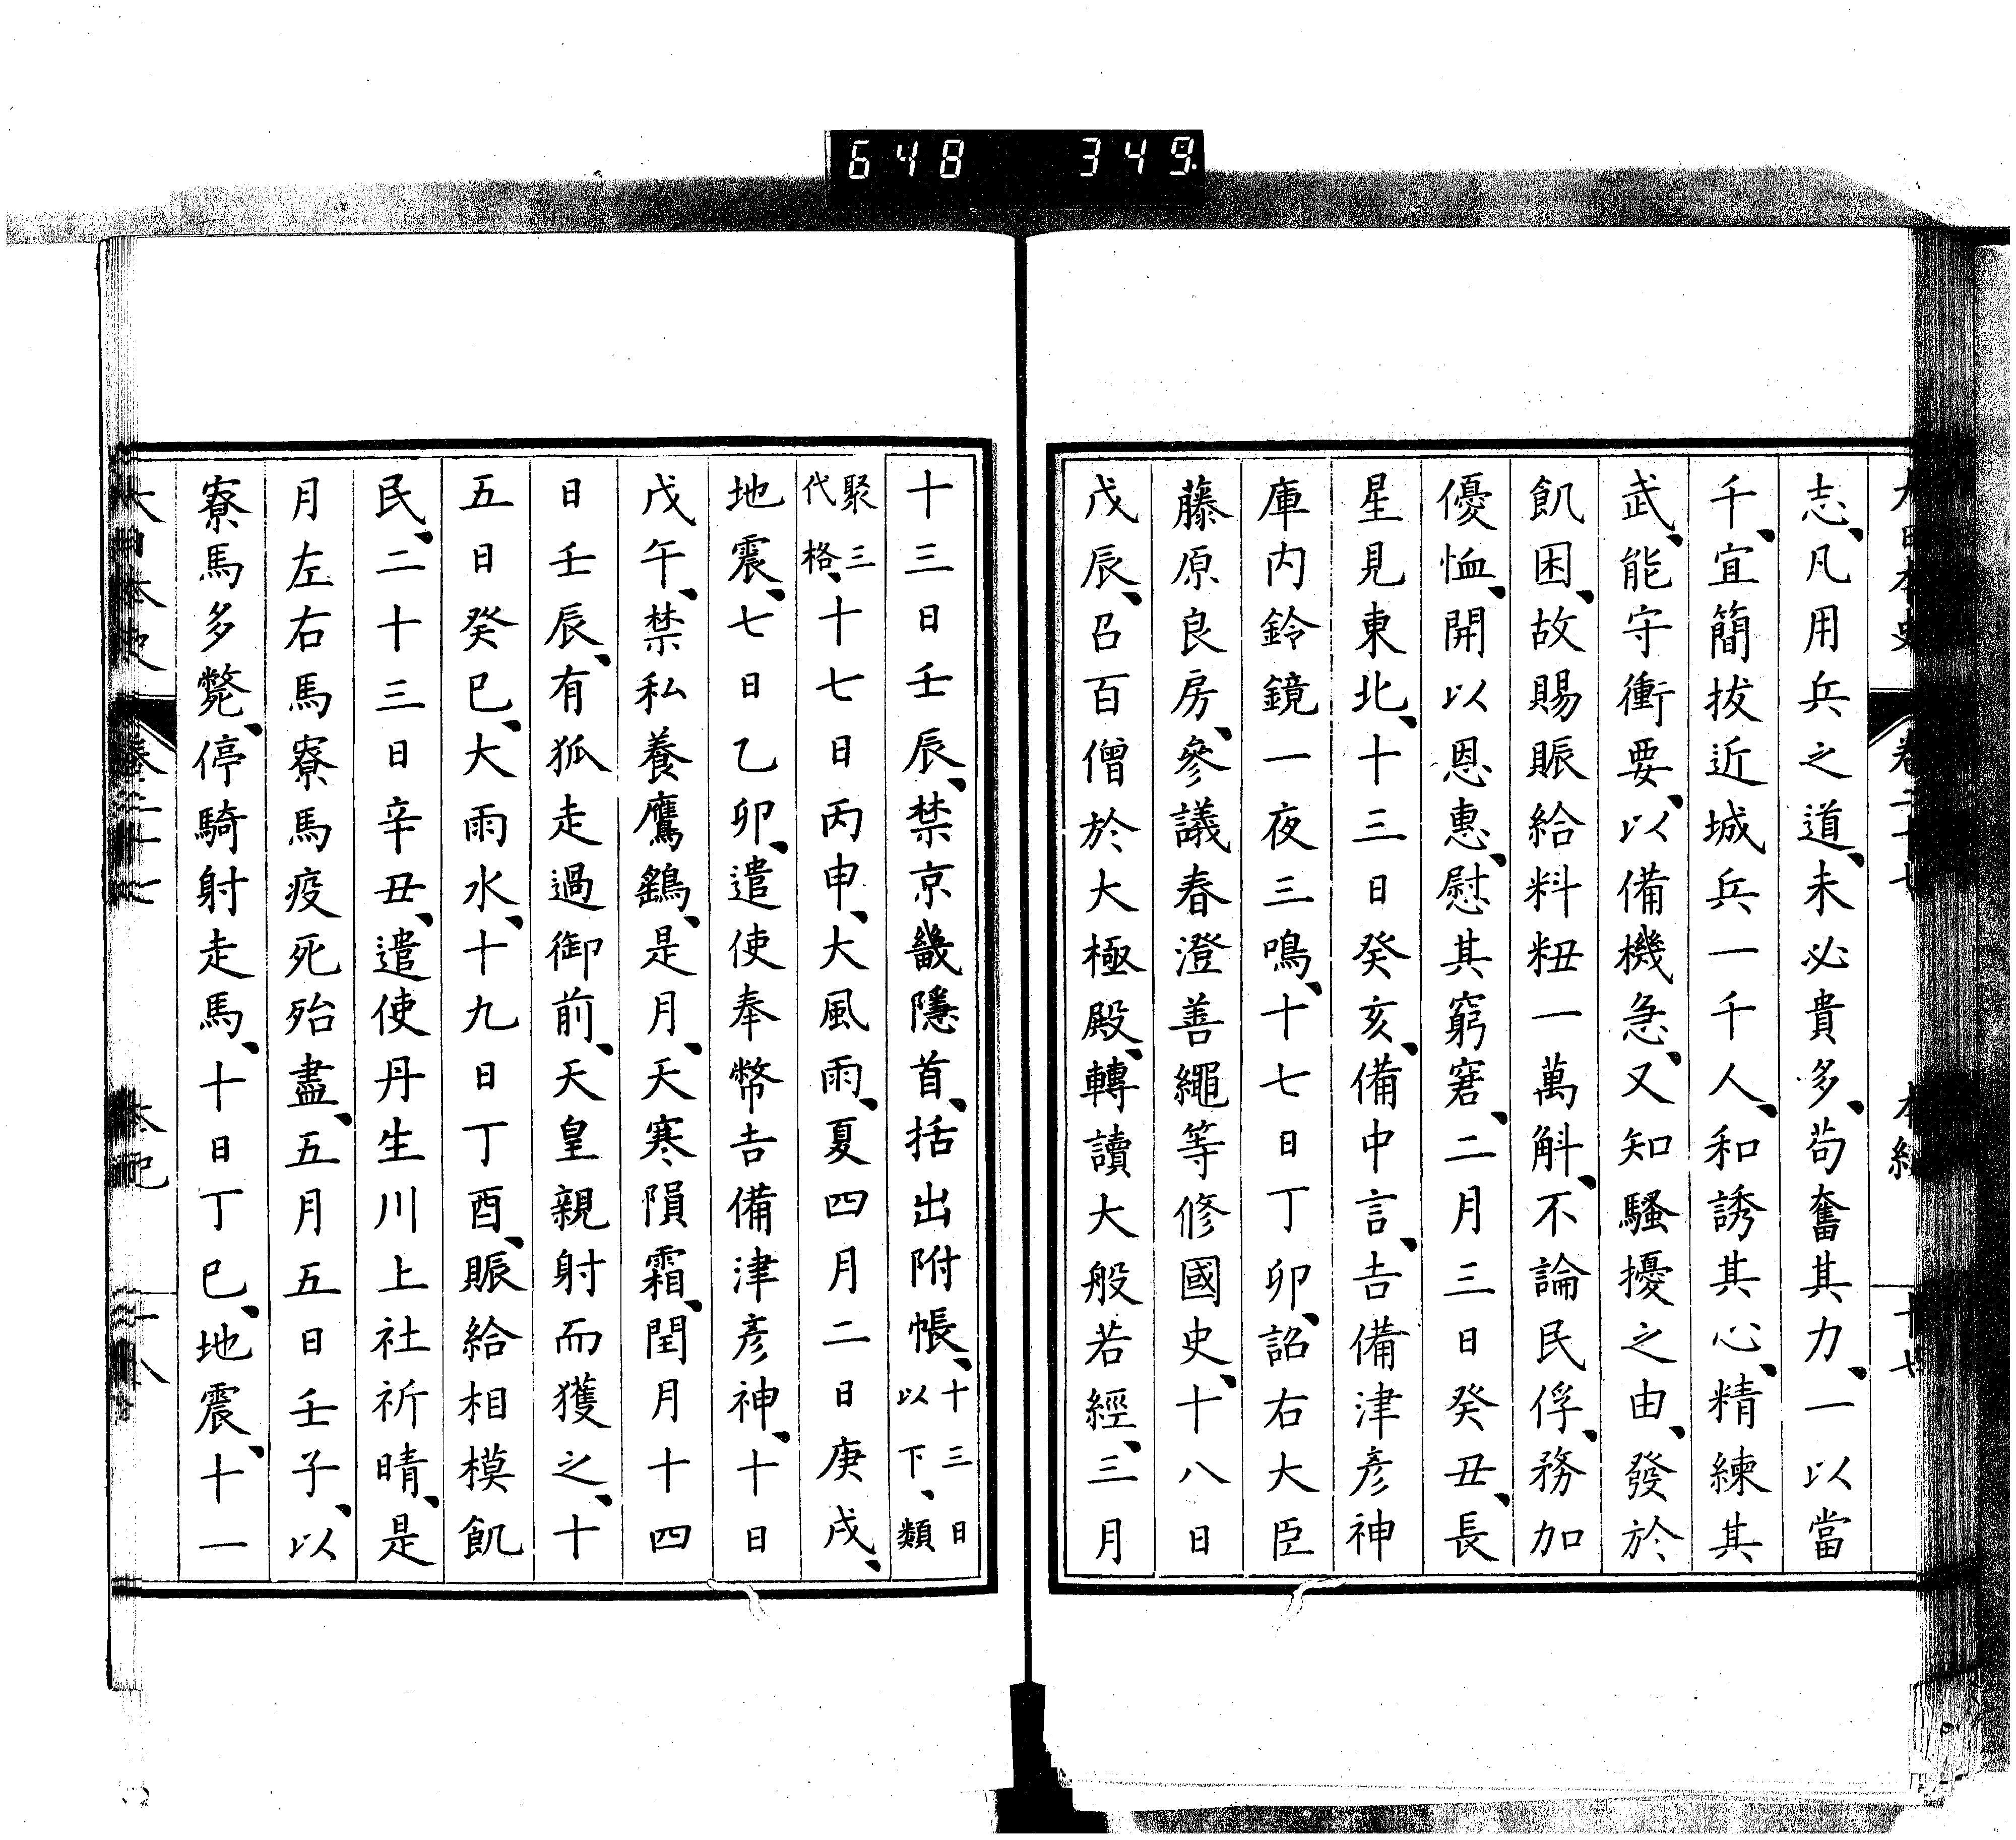 648 349
大日本史 卷二十七 本紀 十七
志、凡用兵之道、未必貴多、苟奮其力、一以當
千、宜簡拔近城兵一千人、和誘其心、精練其
武、能守衝要、以備機急、又知騷擾之由、發於
飢困、故賜賑給料粈一萬斛、不論民俘、務加
優恤、開以恩惠、慰其窮窘、二月三日癸丑、長
星見東北、十三日癸亥、備中言、吉備津彥神
庫內鈴鏡一夜三鳴、十七日丁卯、詔右大臣
藤原良房、參議春澄善繩等修國史、十八日
戊辰、召百僧於大極殿、轉讀大般若經、三月
十三日壬辰、禁京畿隱首、括出附帳、十三日以下、類
聚三代格、十七日丙申、大風雨、夏四月二日庚戌、
地震、七日乙卯、遣使奉幣吉備津彥神、十日
戊午、禁私養鷹鷂、是月、天寒隕霜、閏月十四
日壬辰、有狐走過御前、天皇親射而獲之、十
五日癸巳、大雨水、十九日丁酉、賑給相模飢
民、二十三日辛丑、遣使丹生川上社祈晴、是
月左右馬寮馬疫死殆盡、五月五日壬子、以
寮馬多斃、停騎射走馬、十日丁巳、地震、十一
大日本史 卷二十七 本紀 十八